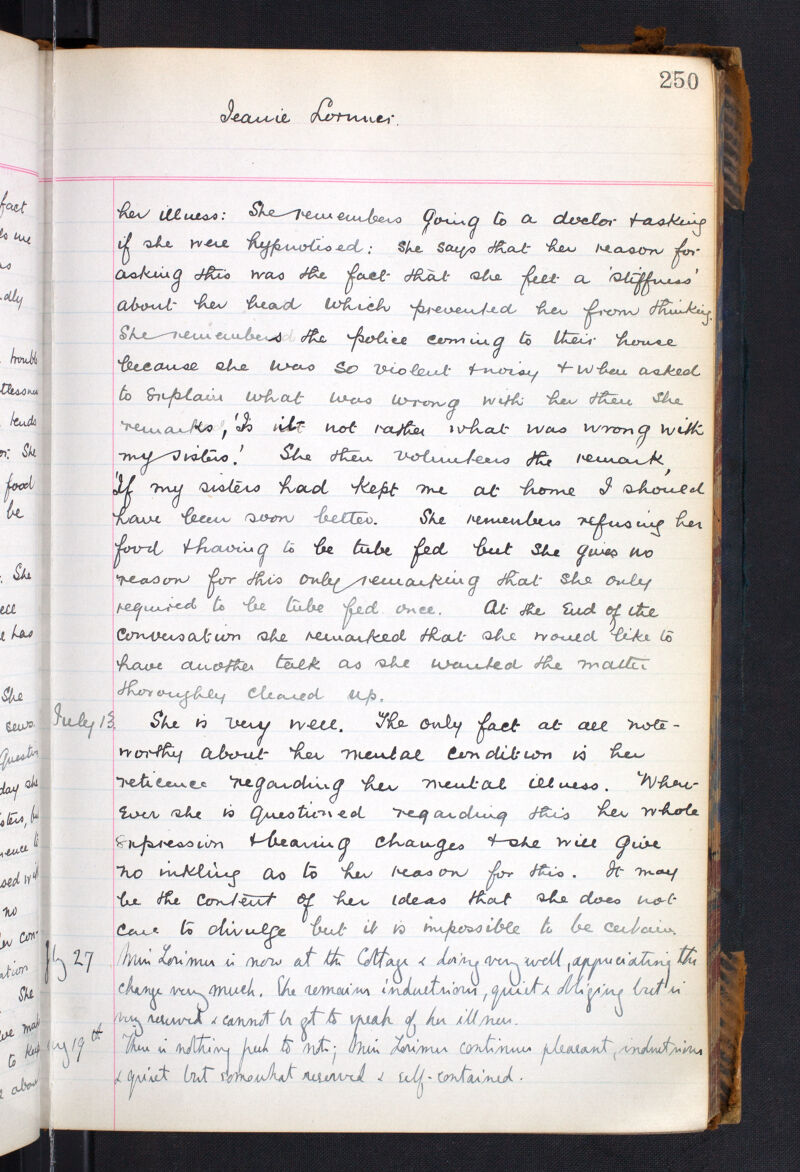 250
Jeanie Lorimer.
her illness: She remembers going to a doctor & asking
if she were hypnotised: she says that her reason for
asking this was the fact that she felt a 'stiffness'
about her head which prevented her from thinking.
She remembers the police coming to their house
because she was so violent & noisy & when asked
to explain what was wrong with her then she
remarks, 'Is it not rather what was wrong with
my sisters.' She then volunteers the remark,
'If my sisters had kept me at home I should
have been soon better. She remembers refusing her
food & having to be tube fed but she gives no
reason for this only remarking that she only
required to be tube fed once. At the end of the
conversation she remarked that she would like to
have another talk as she wanted the matter
thoroughly cleared up.
July 13. She is very well. The only fact at all note-
worthy about her mental condition is her
reticence regarding her mental illness. When-
ever she is questioned regarding this her whole
expression & bearing changes & she will give
no inkling as to her reason for this. It may
be the content of her ideas that she does not
care to divulge but it is impossible to be certain.
July 27 Miss Lorimer is now at the Cottage & doing very well, appreciating the
change very much. She remains industrious, quiet & obliging but is
very reserved & cannot be got to speak of her illness.
19th There is nothing fresh to note; Miss Lorimer continues pleasant, industrious
& quiet but somewhat reserved & self-contained.
fact
food
be
She
She
sews
day she
no
She
to keep
about